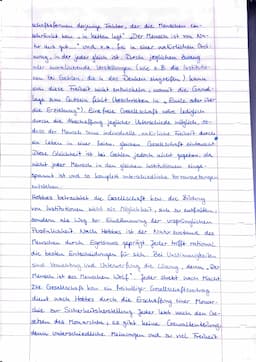 schaftsformen derjenige Faktor, der die Menschen ein-
schränkt bzw. „in Ketten legt“. „Der Mensch ist von Na-
tur aus gut...“ und z.B. frei in einer natürlichen Ord-
nung, in der jeder gleich ist. Durch jeglichen
oder (wie z.B. die Institutio-
nen bei Gehlen, die in das Denken eingreifen) könne
sich diese Freiheit nicht entwickeln, wonach die Grund-
lage zum fehlt (beschrieben in „Emile oder über
die Erziehung“). Eine freie Gesellschaft wäre lediglich
durch die Abschaffung jeglicher Unterschiede möglich, so-
dass der Mensch seine individuelle natürliche Freiheit durch
ein Leben in einer freien, gleichen Gesellschaft
Diese Gleichheit ist bei Gehlen jedoch nicht gegeben, da
nicht jeder Mensch in den gleichen Institutionen einge-
spannt ist und so komplett unterschiedliche Voraussetzungen
entstehen.
Hobbes betrachtet die Gesellschaft bzw. die Bildung
von Institutionen nicht als Möglichkeit, sich zu entfalten,
sondern als Weg zur Eindämmung der ursprünglichen
Position. Nach Hobbes ist der Naturzustand des
Menschen durch Egoismus geprägt. Jeder trifft rational
die besten Entscheidungen für sich. Bei Unstimmigkeiten
sind und Unterwerfung die Lösung, denn „Der
Mensch ist des Menschen Wolf“. Jeder strebt nach Macht.
Die Gesellschaft bzw. ein freiwilliger Gesellschaftsvertrag
dient nach Hobbes durch die Erschaffung einer Monar-
chie zur Sicherheitsherstellung. Jeder lebt nach den Ge-
setzen des Monarchen, es gibt keine Gewaltenteilung,
denn unterschiedliche Meinungen und zu viel Freiheit